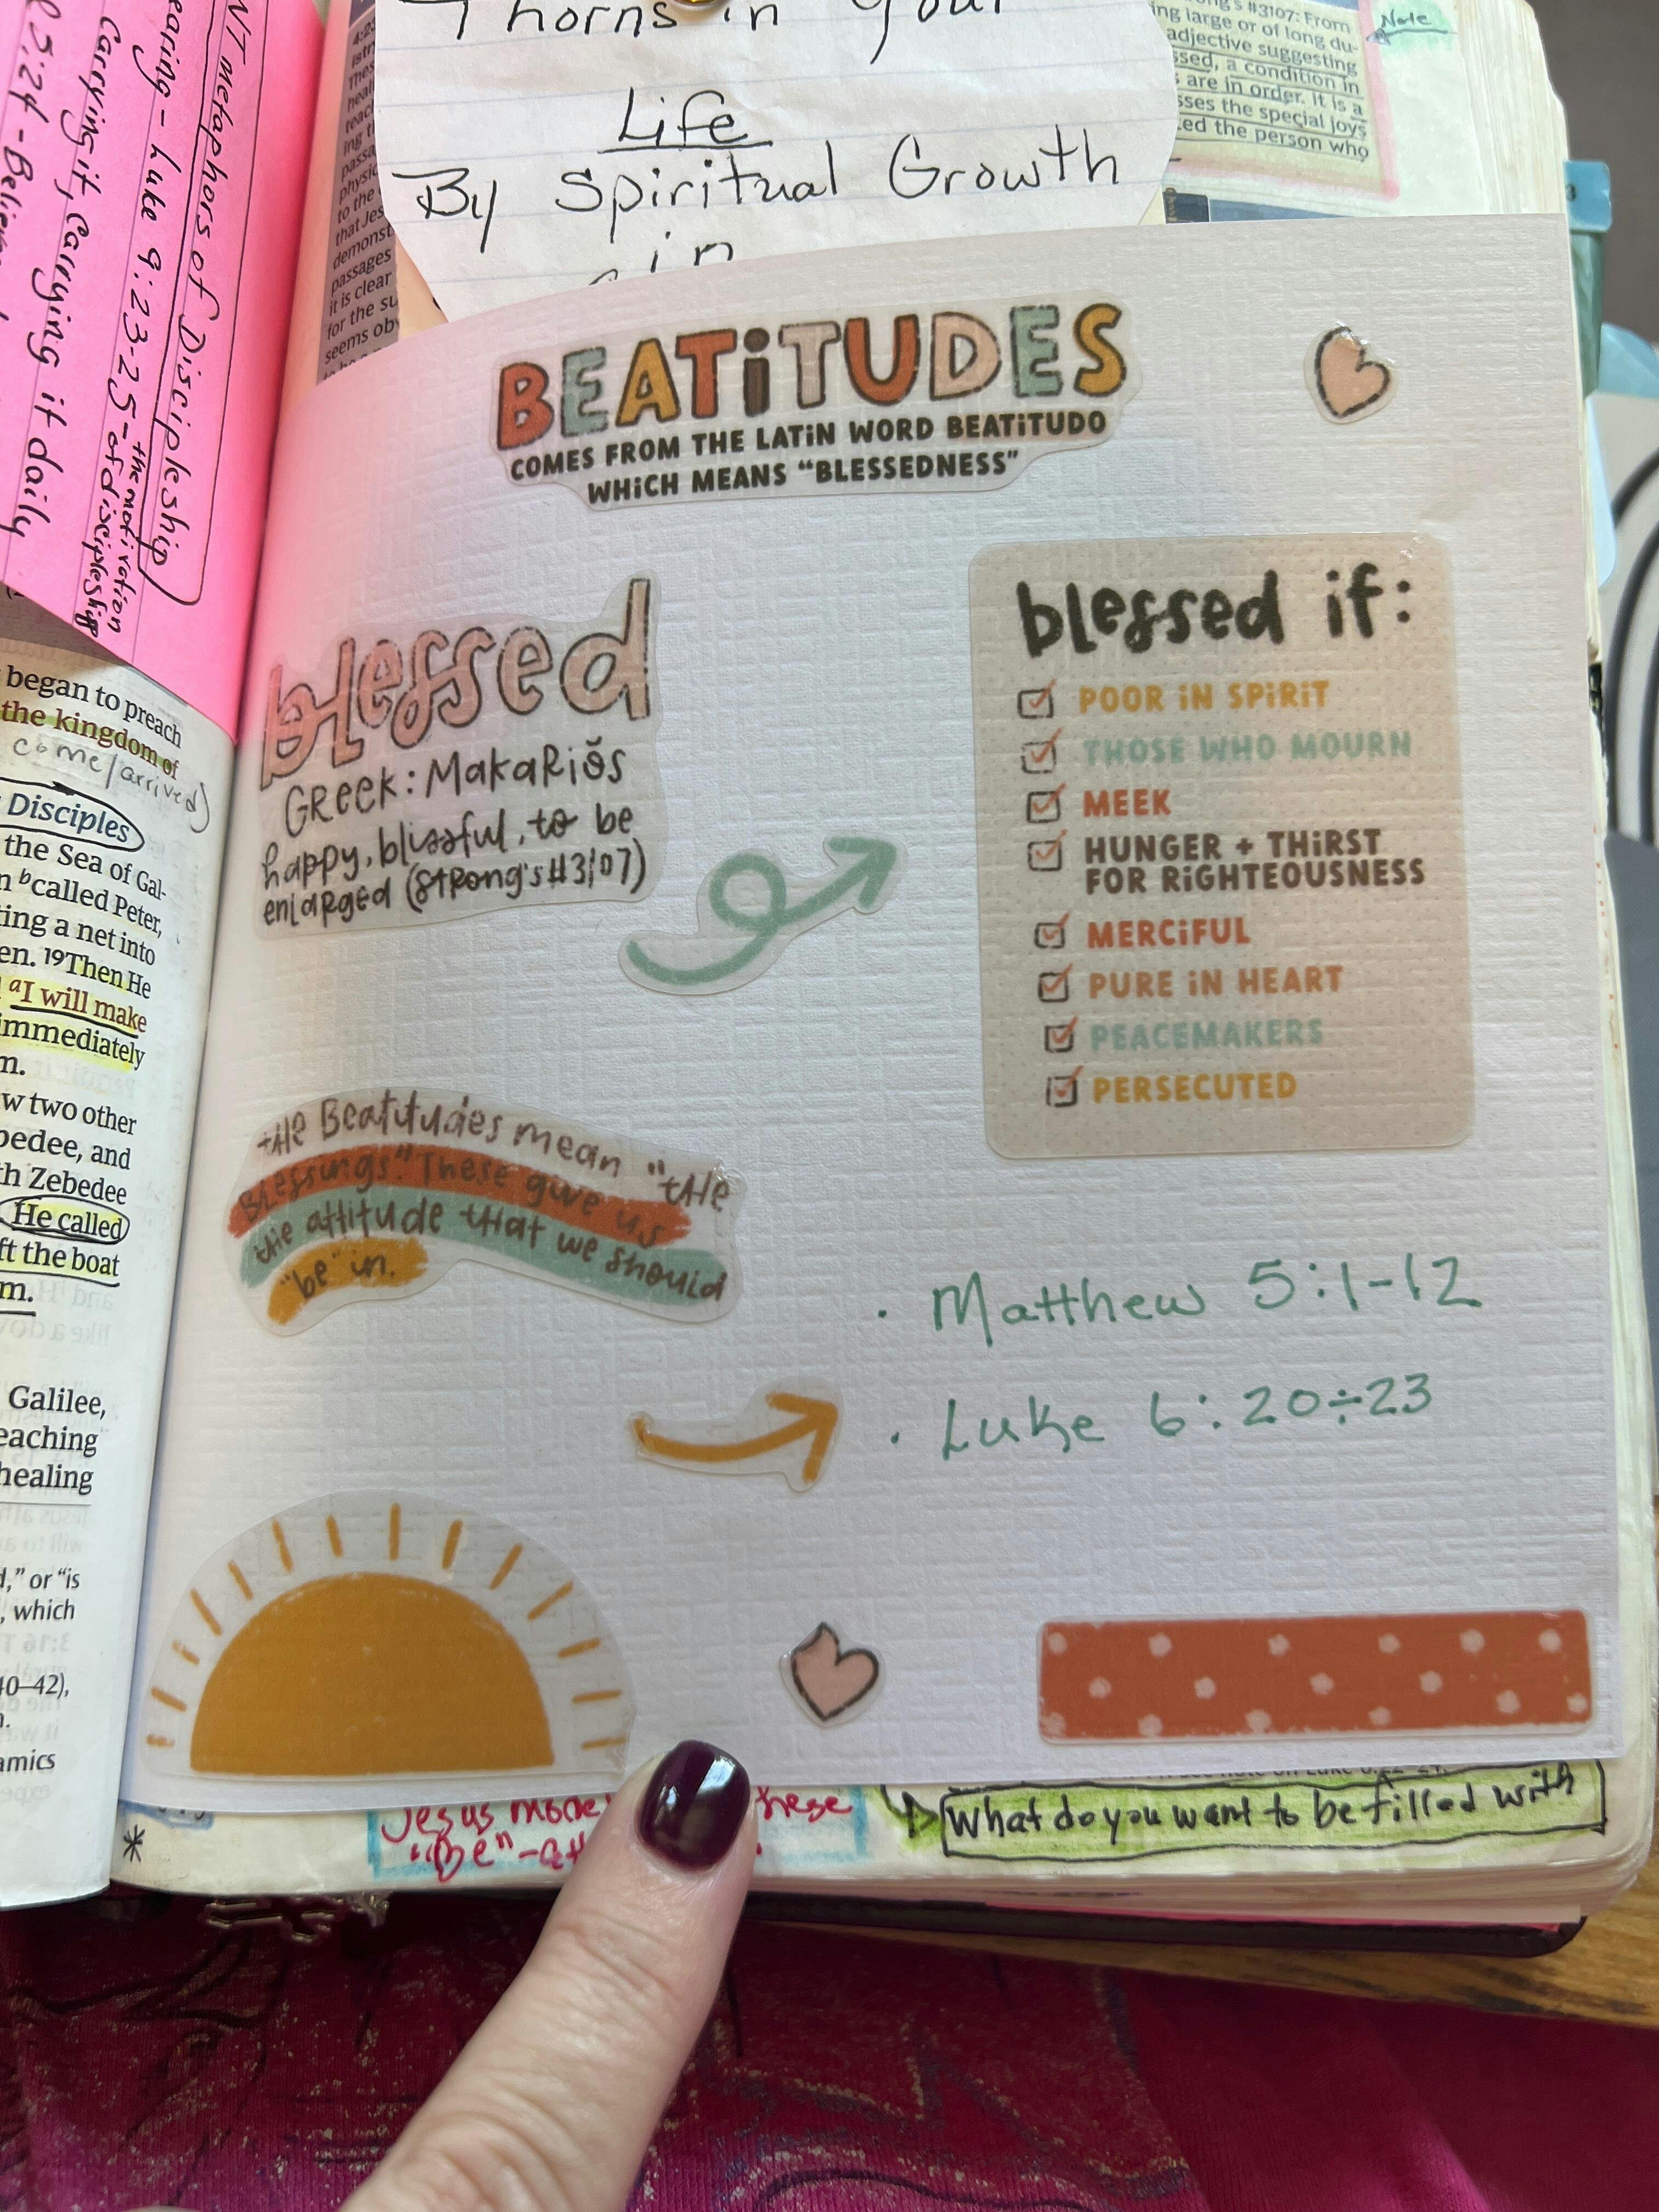 Thorns in Your
Life
By Spiritual Growth
in
ng's #3107: From
ing large or of long du-
adjective suggesting
ssed, a condition in
s are in order. It is a
sses the special joys
ted the person who
Note
NT Metaphors of Discipleship
earing - Luke 9:23-25 - the motivation
of discipleship
Carrying it, carrying it daily
5:24 - Believe
heal
teac
ing t
passa
physic
to the
that Jes
demonst
passages
it is clear
for the su
seems ob
BEATiTUDES
COMES FROM THE LATiN WORD BEATiTUDO
WHiCH MEANS "BLESSEDNESS"
blessed
GReek: MakaRiŏs
happy, blissful, to be
enlarged (StRong's #3107)
blessed if:
POOR iN SPiRiT
THOSE WHO MOURN
MEEK
HUNGER + THiRST
FOR RiGHTEOUSNESS
MERCiFUL
PURE iN HEART
PEACEMAKERS
PERSECUTED
the Beatitudes mean "the
Blessings". These give us
the attitude that we should
"be" in.
• Matthew 5:1-12
• Luke 6:20÷23
began to preach
the kingdom of
come/arrived)
Disciples
the Sea of Gal-
n b called Peter,
ting a net into
en. 19Then He
a I will make
immediately
m.
w two other
bedee, and
th Zebedee
He called
ft the boat
m.
Galilee,
eaching
healing
d," or "is
, which
40–42),
n.
amics
*
Jesus these
"Be"
What do you want to be filled with